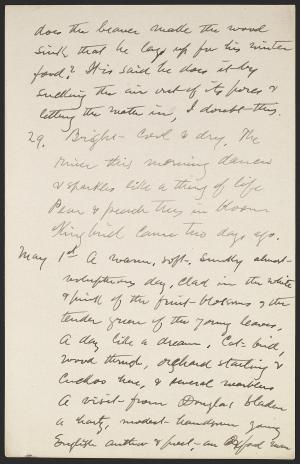 does the beaver make the wood
sink that he lays up for his winter
food? It is said he does it by
sucking the air out of its pores &
letting the water in, I doubt this.
29. Bright - Cool & dry, The
river this morning dances
& sparkles like a thing of life
Pear & peach trees in bloom
King bird came two days ago.
May 1st A warm, soft, Sunday almost
voluptuous day, clad in the white
& pink of the fruit blossoms & the
tender green of the young leaves,
A day like a dream. Cat-bird,
wood thrush, orchard starling &
Cuckoo here, & several warblers
A visit from Douglas Sladen
a hearty, modest handsome young
English author & poet, - an Oxford man